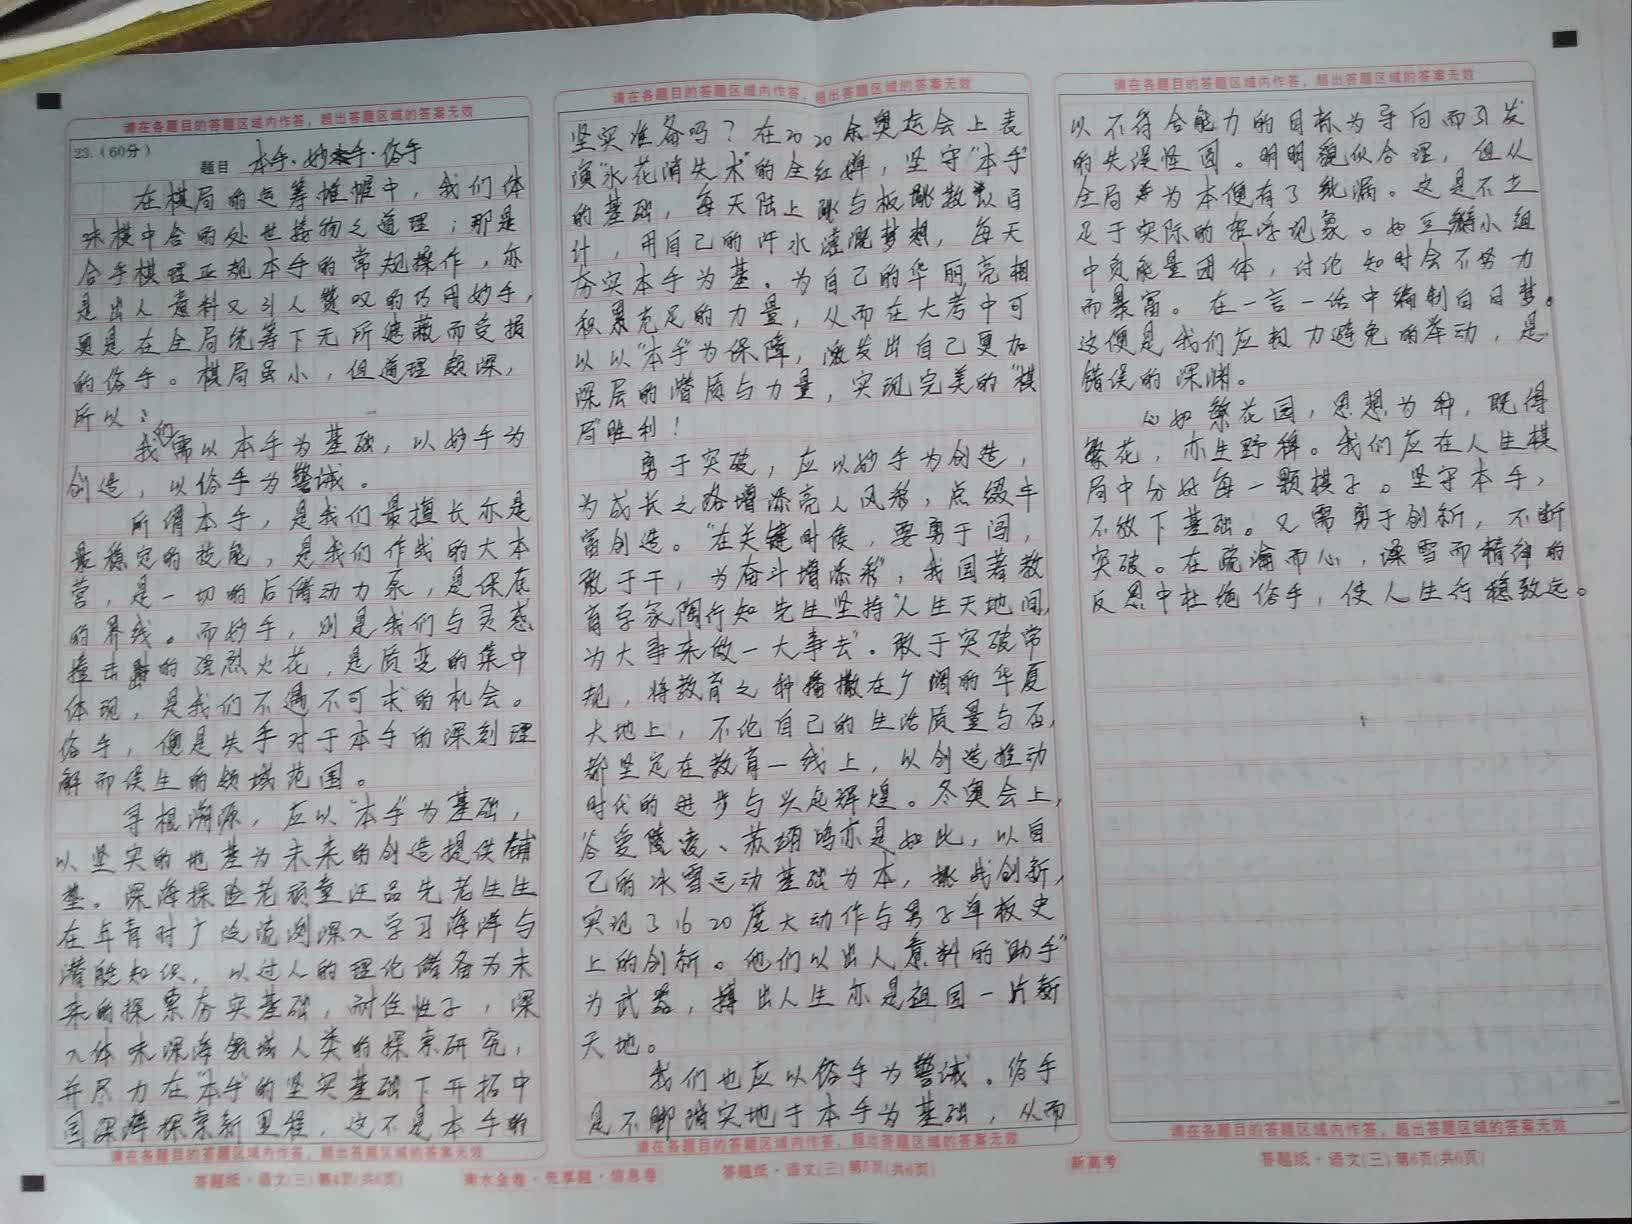 请在各题目的答题区域内作答，超出答题区域的答案无效
23.（60分）
题目 本手·妙手·俗手
在棋局的运筹帷幄中，我们体
味棋中含的处世接物之道理；那是
合乎棋理正规本手的常规操作，亦
是出人意料又引人赞叹的巧用妙手，
更是在全局统筹下无所遮蔽而受损
的俗手。棋局虽小，但道理颇深，
所以：
我们需以本手为基础，以妙手为
创造，以俗手为警诫。
所谓本手，是我们最擅长亦是
最稳定的技能，是我们作战的大本
营，是一切的后备动力系，是保底
的界线。而妙手，则是我们与灵感
撞击出的强烈火花，是质变的集中
体现，是我们不遇不可求的机会。
俗手，便是失手对于本手的深刻理
解而误生的领域范围。
寻根溯源，应以“本手”为基础，
以坚实的地基为未来的创造提供铺
垫。深海探险老顽童汪品先老先生
在年青时广泛流浏深入学习海洋与
潜艇知识，以过人的理论储备为未
来的探索夯实基础，耐住性子，深
入体味深海领域人类的探索研究，
并尽力在“本手”的坚实基础下开拓中
国深海探索新里程，这不是本手的
请在各题目的答题区域内作答，超出答题区域的答案无效
答题纸·语文(三) 第4页(共6页)
请在各题目的答题区域内作答，超出答题区域的答案无效
坚实准备吗？在2020东奥运会上表
演“水花消失术”的全红婵，坚守“本手”
的基础，每天陆上跳与板跳数以百
计，用自己的汗水灌溉梦想，每天
夯实本手为基。为自己的华丽亮相
积累充足的力量，从而在大考中可
以以“本手”为保障，激发出自己更加
深层的潜质与力量，实现完美的“棋
局”胜利！
勇于突破，应以妙手为创造，
为成长之路增添亮人风彩，点缀丰
富创造。“在关键时候，要勇于闯，
敢于干，为奋斗增添彩”，我国著教
育学家陶行知先生坚持“人生天地间，
为大事来做一大事去”。敢于突破常
规，将教育之种播撒在广阔的华夏
大地上，不论自己的生活质量与否，
都坚定在教育一线上，以创造推动
时代的进步与兴起辉煌。冬奥会上，
谷爱陵凌、苏翊鸣亦是如此，以自
己的冰雪运动基础为本，挑战创新，
实现了1620度大动作与男子单板史
上的创新。他们以出人意料的“助手”
为武器，搏出人生亦是祖国一片新
天地。
我们也应以俗手为警诫。俗手
是不脚踏实地于本手为基础，从而
请在各题目的答题区域内作答，超出答题区域的答案无效
衡水金卷·先享题·信息卷 答题纸·语文(三) 第5页(共6页)
请在各题目的答题区域内作答，超出答题区域的答案无效
以不符合能力的目标为导向而引发
的失误怪圈。明明貌似合理，但从
全局为本便有了纰漏。这是不立
足于实际的轻浮现象。如豆瓣小组
中负能量团体，讨论知时会不努力
而暴富。在一言一语中编制白日梦。
这便是我们应极力避免的举动，是
错误的深渊。
心如繁花园，思想为种，既得
繁花，亦生野稗。我们应在人生棋
局中分好每一颗棋子。坚守本手，
不放下基础。又需勇于创新，不断
突破。在疏瀹而心，澡雪而精神的
反思中杜绝俗手，使人生行稳致远。
请在各题目的答题区域内作答，超出答题区域的答案无效
新高考 答题纸·语文(三) 第6页(共6页)